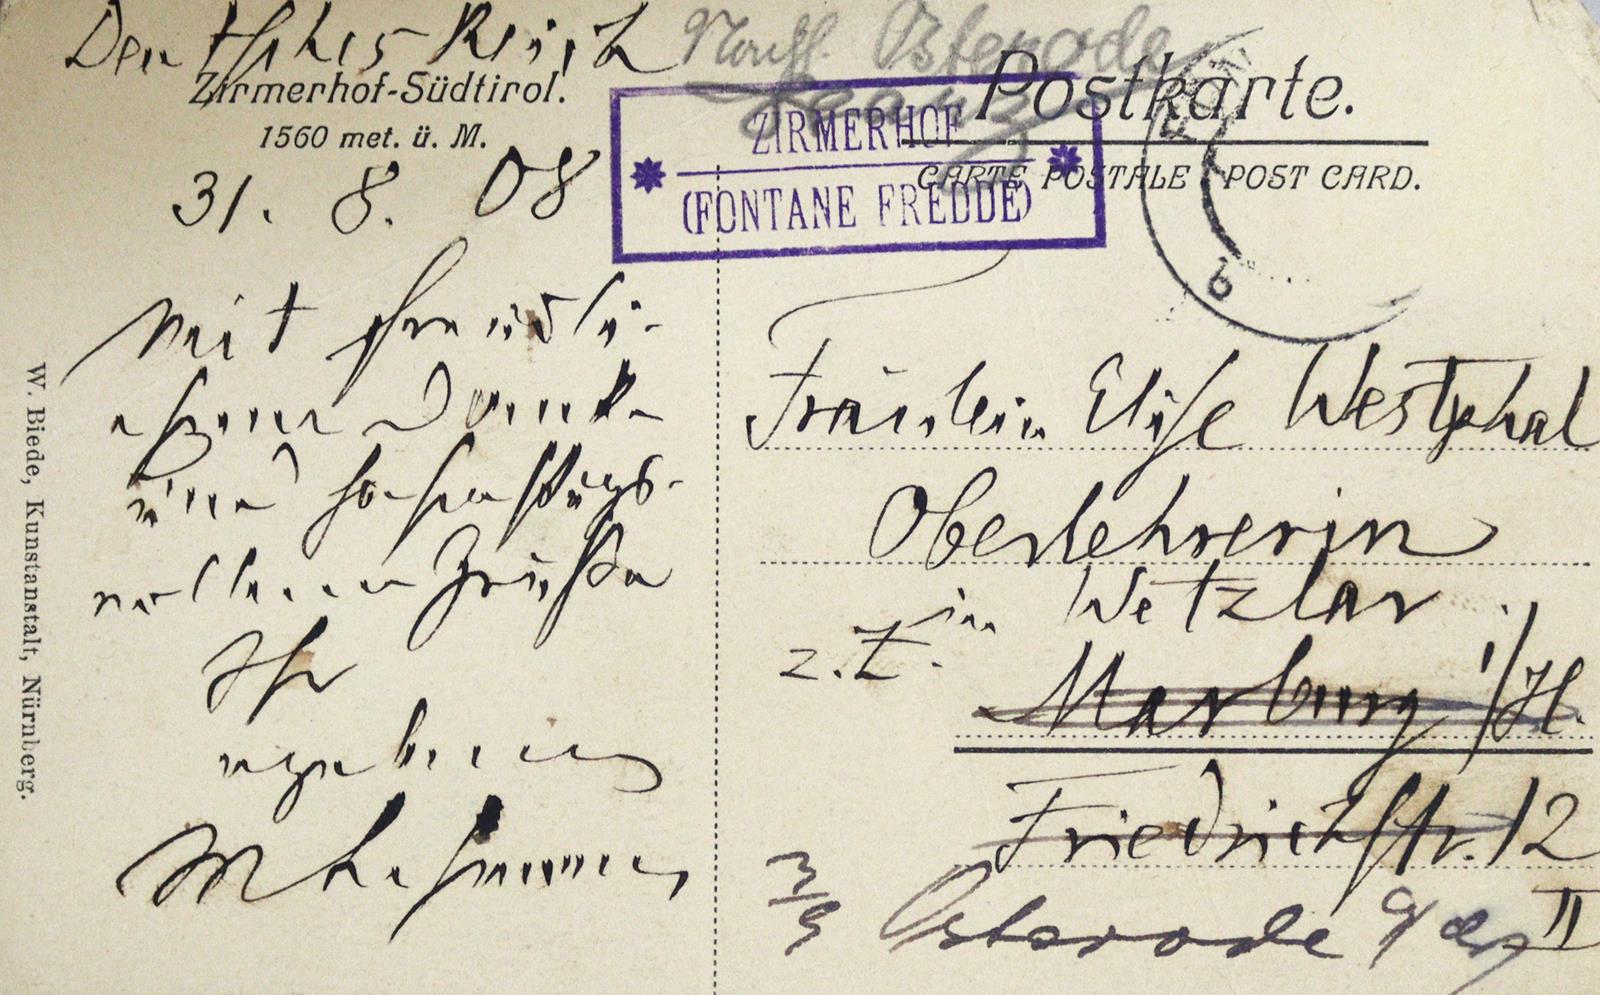 Deutsches Reich
Nachf. Osterode
Zirmerhof-Südtirol.
1560 met. ü. M.
Postkarte.
CARTE POSTALE POST CARD.
ZIRMERHOF
(FONTANE FREDDE)
31. 8. 08
b
Mit freundli-
chem Dank
und hochachtungs-
vollem Grüße
Ihr
ergebener
W. Biede, Kunstanstalt, Nürnberg.
Fräulein Elise Westphal
Oberlehrerin
in Wetzlar.
z. Z.
Marburg i/H.
Friedrichstr. 12
II
3/9 Osterode